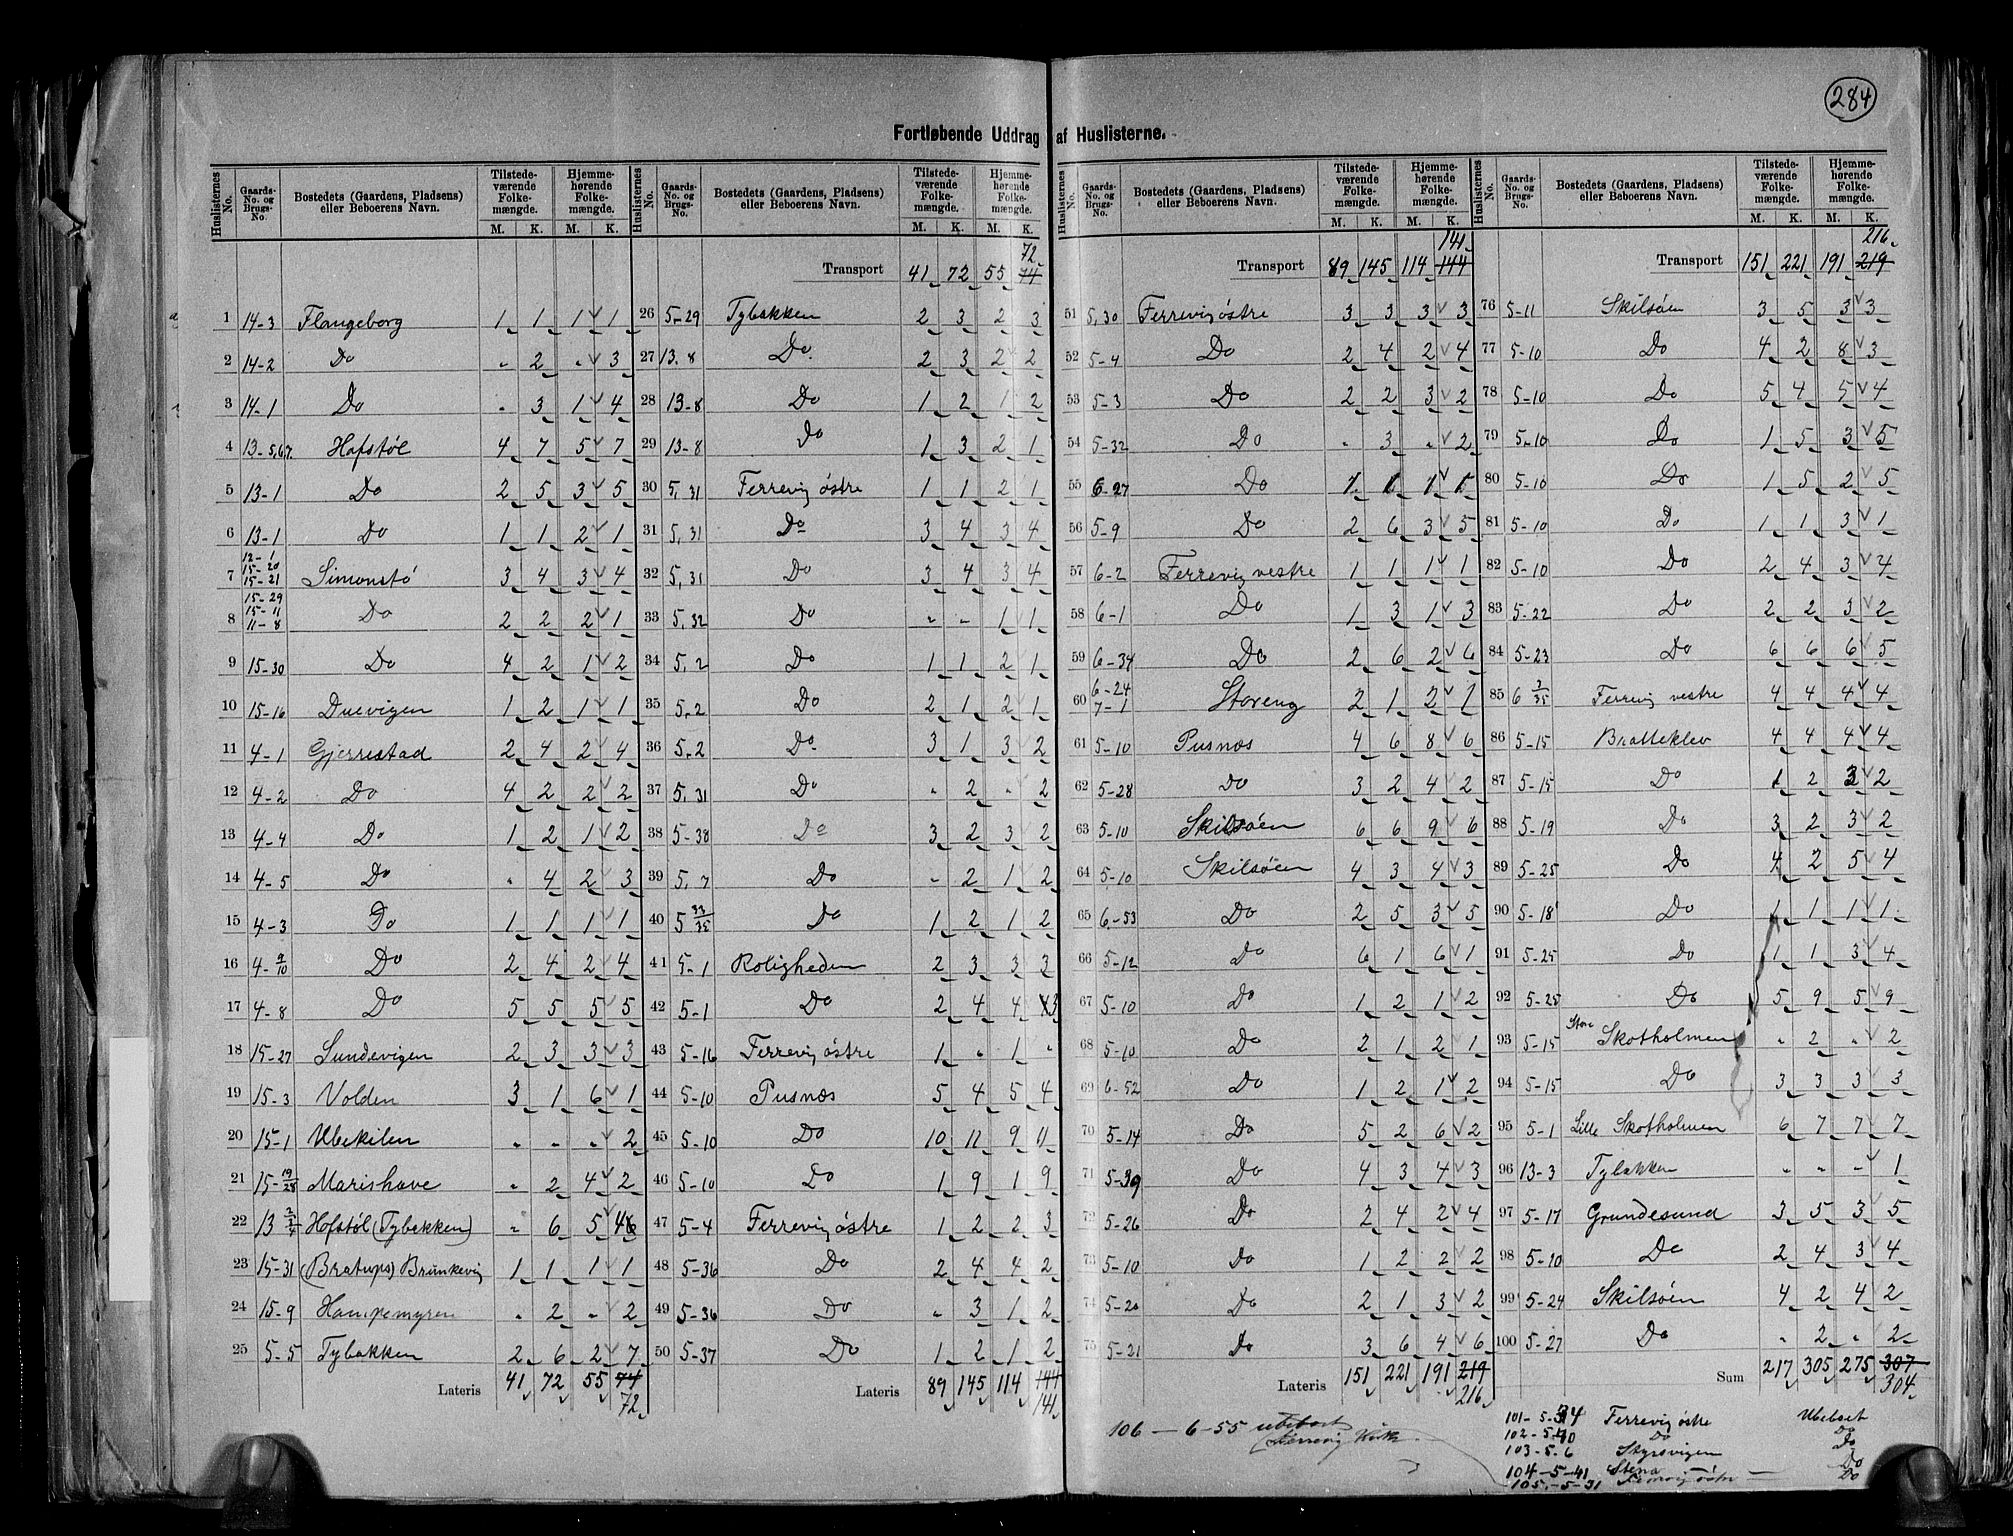 284
Fortløbende Uddrag af Huslisterne.
Huslisternes No. Gaards-No. og Brugs-No. Bostedets (Gaardens, Pladsens) eller Beboerens Navn. Tilstedeværende Folkemængde. M. K. Hjemmehørende Folkemængde. M. K.
1 14-3 Flangeborg 1 1 1 1
2 14-2 Do " 2 " 3
3 14-1 Do " 3 1 4
4 13-5,6,7. Hofstøl 4 7 5 7
5 13-1 Do 2 5 3 5
6 13-1 Do 1 1 2 1
7 12-1 15-20 15-21 Simonstø 3 4 3 4
8 15-29 15-11 11-8 Do 2 2 2 1
9 15-30 Do 4 2 1 2
10 15-16 Duevigen 1 2 1 1
11 4-1 Gjerrestad 2 4 2 4
12 4-2 Do 4 2 2 2
13 4-4 Do 1 2 1 2
14 4-5 Do " 4 2 3
15 4-3 Do 1 1 1 1
16 4-9/10 Do 2 4 2 4
17 4-8 Do 5 5 5 5
18 15-27 Sundevigen 2 3 3 3
19 15-3 Volden 3 1 6 1
20 15-1 Ubekilen " " " 2
21 15-19/28 Marishave " 2 4 2
22 13 Hofstøl (Tybakken) " 6 5
23 15-31 (Bratups) Brunkevig 1 1 1 1
24 15-9 Hampemyren " 2 " 2
25 5-5 Tybakken 2 6 2 7
Lateris 41 72 55 74 72
Huslisternes No. Gaards-No. og Brugs-No. Bostedets (Gaardens, Pladsens) eller Beboerens Navn. Tilstedeværende Folkemængde. M. K. Hjemmehørende Folkemængde. M. K.
72
Transport 41 72 55 74
26 5-29 Tybakken 2 3 2 3
27 13.8 Do. 2 3 2 2
28 13-8 Do 1 2 1 2
29 13-8 Do 1 3 2 1
30 5,31 Ferrevig østre 1 1 2 1
31 5,31 Do 3 4 3 4
32 5,31 Do 3 4 3 4
33 5,32 Do " " 1 1
34 5,2 Do 1 1 2 1
35 5,2 Do 2 1 2 1
36 5,2 Do 3 1 3 2
37 5,31 Do " 2 " 2
38 5-38 Do 3 2 3 2
39 5,7 Do " 2 1 2
40 5 33/35 Do 1 2 1 2
41 5-1 Roligheden 2 3 3 3
42 5-1 Do 2 4 4 3
43 5-16 Ferrevig østre 1 " 1 "
44 5-10 Pusnæs 5 4 5 4
45 5-10 Do 10 11 9 11
46 5-10 Do 1 9 1 9
47 5-4 Ferrevig østre 1 2 2 3
48 5-36 Do 2 4 4 2
49 5-36 Do " 3 1 2
50 5-37 Do 1 2 1 2
Lateris 89 145 114 144 141
Huslisternes No. Gaards-No. og Brugs-No. Bostedets (Gaardens, Pladsens) eller Beboerens Navn. Tilstedeværende Folkemængde. M. K. Hjemmehørende Folkemængde. M. K.
141
Transport 89 145 114 144
51 5,30 Ferrevig østre 3 3 3 3
52 5-4 Do 2 4 2 4
53 5-3 Do 2 2 3 2
54 5-32 Do " 3 " 2
55 6-27 Do 1 1 1 1
56 5-9 Do 2 6 3 5
57 6-2 Ferrevig vestre 1 1 1 1
58 6-1 Do 1 3 1 3
59 6-34 Do 2 6 2 6
60 6-24 7-1 Storeng 2 1 2 1
61 5-10 Pusnæs 4 6 8 6
62 5-28 Do 3 2 4 2
63 5-10 Skilsøen 6 6 9 6
64 5-10 Skilsøen 4 3 4 3
65 6-53 Do 2 5 3 5
66 5-12 Do 6 1 6 1
67 5-10 Do 1 2 1 2
68 5-10 Do 2 1 2 1
69 6-52 Do 1 2 1 2
70 5-14 Do 5 2 6 2
71 5-39 Do 4 3 4 3
72 5-26 Do 2 4 2 4
73 5-10 Do 1 2 2 2
74 5-20 Do 2 1 3 2
75 5-21 Do 3 6 4 6
Lateris 151 221 191 219 216
Huslisternes No. Gaards-No. og Brugs-No. Bostedets (Gaardens, Pladsens) eller Beboerens Navn. Tilstedeværende Folkemængde. M. K. Hjemmehørende Folkemængde. M. K.
216
Transport 151 221 191 219
76 5-11 Skilsøen 3 5 3 3
77 5-10 Do 4 2 8 3
78 5-10 Do 5 4 5 4
79 5-10 Do 1 5 3 5
80 5-10 Do 1 5 2 5
81 5-10 Do 1 1 3 1
82 5-10 Do 2 4 3 4
83 5-22 Do 2 2 3 2
84 5-23 Do 6 6 6 5
85 6 3/35 Ferrevig vestre 4 4 4 4
86 5-15 Bratteklev 4 4 4 4
87 5-15 Do 1 2 3 2
88 5-19 Do 3 2 3 2
89 5-25 Do 4 2 5 4
90 5-18 Do 1 1 1 1
91 5-25 Do 1 1 3 4
92 5-25 Do 5 9 5 9
93 5-15 Store Skotholmen " 2 " 2
94 5-15 Do 3 3 3 3
95 5-1 Lille Skotholmen 6 7 7 7
96 13-3 Tybakken " " " 1
97 5-17 Grundesund 3 5 3 5
98 5-10 Do 2 4 3 4
99 5-24 Skilsøen 4 2 4 2
100 5-27 Do " 2 " 2
Sum 217 305 275 307 304
106 — 6-55 ubeboet
101-5-34 Ferrevig østre Ubeboet
102-5-40 Do Do
103-5-6 Skyrsvigen Do
104-5-41 Stena Do
105-5-31 Ferrevig østre Do